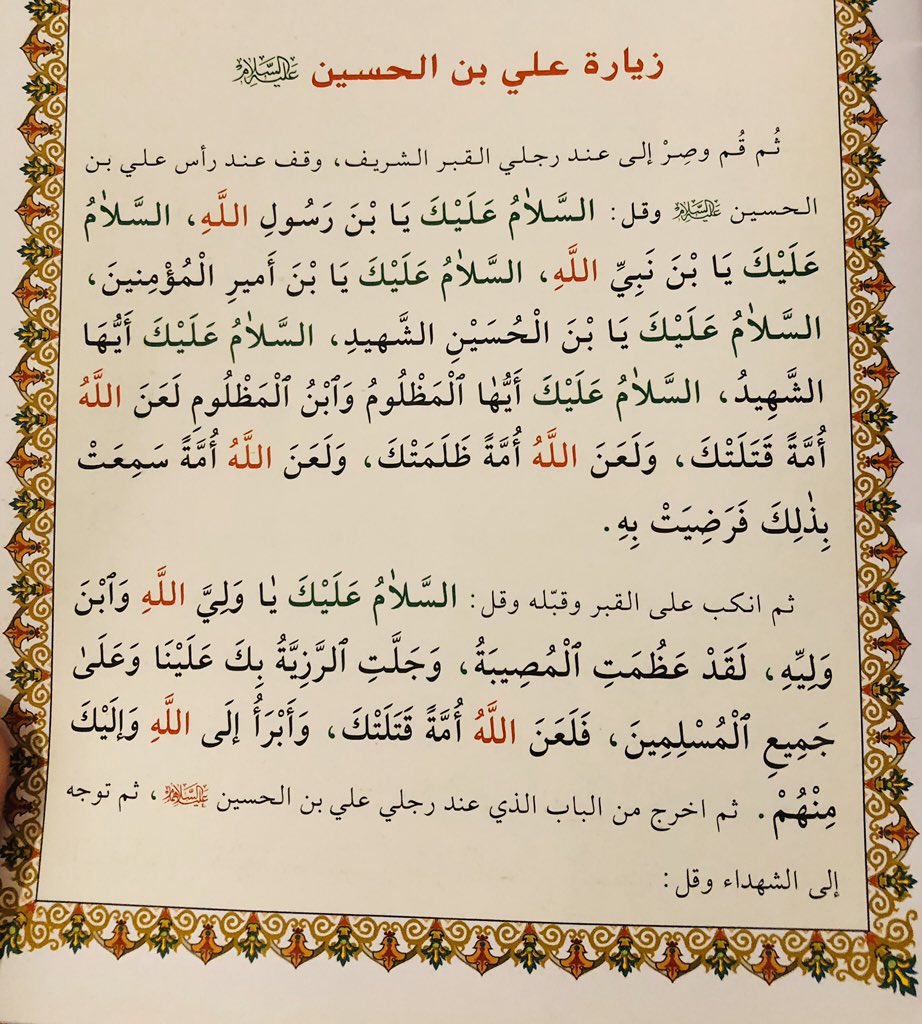 زيارة علي بن الحسين عليه السلام
ثُم قُم وصِرْ إلى عند رجلي القبر الشريف، وقف عند رأس علي بن
الحسين عليه السلام وقل: السَّلاٰمُ عَلَيْكَ يَا بْنَ رَسُولِ اللَّهِ، السَّلاٰمُ
عَلَيْكَ يَا بْنَ نَبِيِّ اللَّهِ، السَّلاٰمُ عَلَيْكَ يَا بْنَ أَميرِ الْمُؤْمِنينَ،
السَّلاٰمُ عَلَيْكَ يَا بْنَ الْحُسَيْنِ الشَّهيدِ، السَّلاٰمُ عَلَيْكَ أَيُّهَا
الشَّهِيدُ، السَّلاٰمُ عَلَيْكَ أَيُّهٰا ٱلْمَظْلُومُ وَٱبْنُ ٱلْمَظْلُومِ لَعَنَ اللَّهُ
أُمَّةً قَتَلَتْكَ، وَلَعَنَ اللَّهُ أُمَّةً ظَلَمَتْكَ، وَلَعَنَ اللَّهُ أُمَّةً سَمِعَتْ
بِذٰلِكَ فَرَضِيَتْ بِهِ.
ثم انكب على القبر وقبّله وقل: السَّلاٰمُ عَلَيْكَ يٰا وَلِيَّ اللَّهِ وَٱبْنَ
وَلِيِّهِ، لَقَدْ عَظُمَتِ ٱلْمُصِيبَةُ، وَجَلَّتِ ٱلرَّزِيَّةُ بِكَ عَلَيْنَا وَعَلَىٰ
جَمِيعِ ٱلْمُسْلِمِينَ، فَلَعَنَ اللَّهُ أُمَّةً قَتَلَتْكَ، وَأَبْرَأُ إلَى اللَّهِ وَإلَيْكَ
مِنْهُمْ. ثم اخرج من الباب الذي عند رجلي علي بن الحسين عليه السلام، ثم توجه
إلى الشهداء وقل: